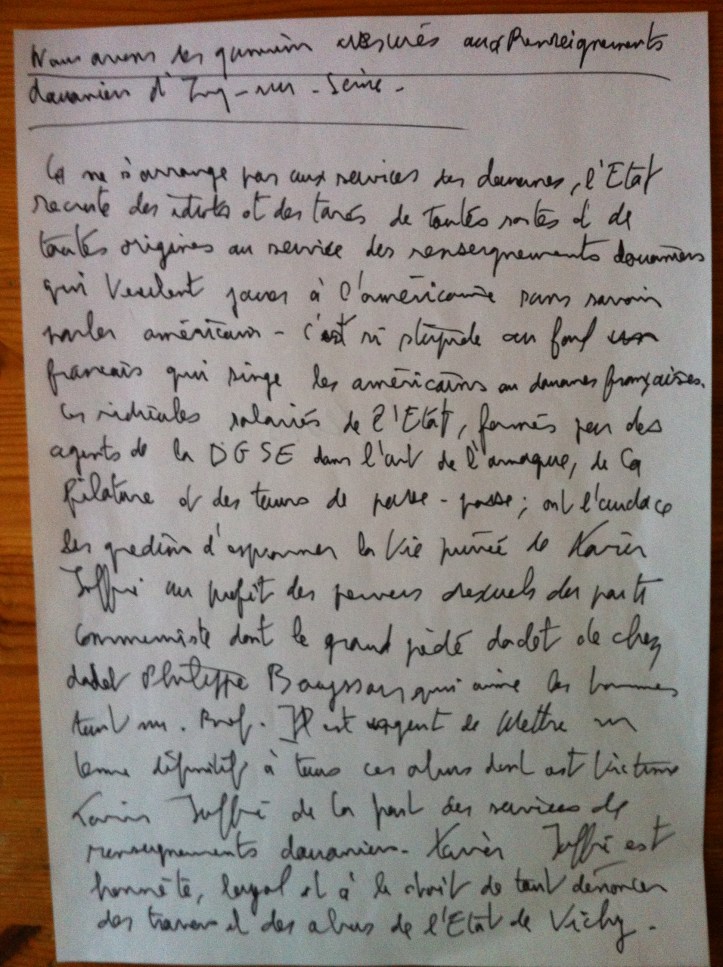 Nous avons les gamins aux Renseignements
douaniers d' - sur - Seine -
ça ne s'arrange pas aux services des douanes, l'Etat
recrute des idiots et des tarés de toutes sortes et de
toutes origines au service des renseignements douaniers
qui veulent jouer à l' sans savoir
parler américain - c'est si stupide au fond un
francais qui singe les américains aux douanes françaises.
Ces ridicules salariés de l'Etat, formés par des
agents de la DGSE dans l'art de l'arnaque, de la
filature et des tours de passe - passe ; ont l'audace
les gredins d'espionner la vie privée de Xavier
au profit des pervers sexuels du parti
communiste dont le grand pédé dadet de chez
dadet Philippe qui aime les hommes
tout nu. Bref. Il est urgent de mettre un
terme définitif à tous ces abus dont est victime
Xavier de la part des services de
renseignements douaniers. Xavier est
honnête, loyal et à le droit de tout dénoncer
des travers et des abus de l'Etat de Vichy.